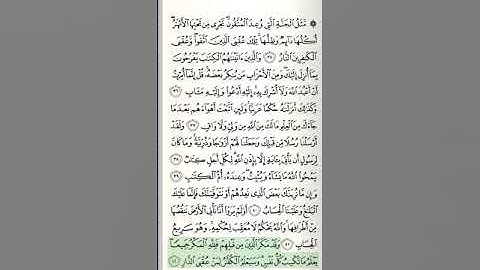 ۞ مَّثَلُ ٱلْجَنَّةِ ٱلَّتِى وُعِدَ ٱلْمُتَّقُونَ تَجْرِى مِن تَحْتِهَا ٱلْأَنْهَٰرُ
أُكُلُهَا دَآئِمٌ وَظِلُّهَا تِلْكَ عُقْبَى ٱلَّذِينَ ٱتَّقَوا۟ وَّعُقْبَى
ٱلْكَٰفِرِينَ ٱلنَّارُ ٣٥ وَٱلَّذِينَ ءَاتَيْنَٰهُمُ ٱلْكِتَٰبَ يَفْرَحُونَ
بِمَآ أُنزِلَ إِلَيْكَ وَمِنَ ٱلْأَحْزَابِ مَن يُنكِرُ بَعْضَهُۥ قُلْ إِنَّمَآ أُمِرْتُ
أَنْ أَعْبُدَ ٱللَّهَ وَلَآ أُشْرِكَ بِهِۦٓ إِلَيْهِ أَدْعُوا۟ وَإِلَيْهِ مَـَٔابِ ٣٦
وَكَذَٰلِكَ أَنزَلْنَٰهُ حُكْمًا عَرَبِيًّا وَلَئِنِ ٱتَّبَعْتَ أَهْوَآءَهُم بَعْدَ مَا
جَآءَكَ مِنَ ٱلْعِلْمِ مَا لَكَ مِنَ ٱللَّهِ مِن وَلِىٍّ وَلَا وَاقٍ ٣٧ وَلَقَدْ
أَرْسَلْنَا رُسُلًا مِّن قَبْلِكَ وَجَعَلْنَا لَهُمْ أَزْوَٰجًا وَذُرِّيَّةً وَمَا كَانَ
لِرَسُولٍ أَن يَأْتِىَ بِـَٔايَةٍ إِلَّا بِإِذْنِ ٱللَّهِ لِكُلِّ أَجَلٍ كِتَابٌ ٣٨
يَمْحُوا۟ ٱللَّهُ مَا يَشَآءُ وَيُثْبِتُ وَعِندَهُۥٓ أُمُّ ٱلْكِتَٰبِ ٣٩
وَإِن مَّا نُرِيَنَّكَ بَعْضَ ٱلَّذِى نَعِدُهُمْ أَوْ نَتَوَفَّيَنَّكَ فَإِنَّمَا عَلَيْكَ
ٱلْبَلَٰغُ وَعَلَيْنَا ٱلْحِسَابُ ٤٠ أَوَلَمْ يَرَوْا۟ أَنَّا نَأْتِى ٱلْأَرْضَ نَنقُصُهَا
مِنْ أَطْرَافِهَا وَٱللَّهُ يَحْكُمُ لَا مُعَقِّبَ لِحُكْمِهِۦ وَهُوَ سَرِيعُ
ٱلْحِسَابِ ٤١ وَقَدْ مَكَرَ ٱلَّذِينَ مِن قَبْلِهِمْ فَلِلَّهِ ٱلْمَكْرُ جَمِيعًا
يَعْلَمُ مَا تَكْسِبُ كُلُّ نَفْسٍ وَسَيَعْلَمُ ٱلْكُفَّٰرُ لِمَنْ عُقْبَى ٱلدَّارِ ٤٢